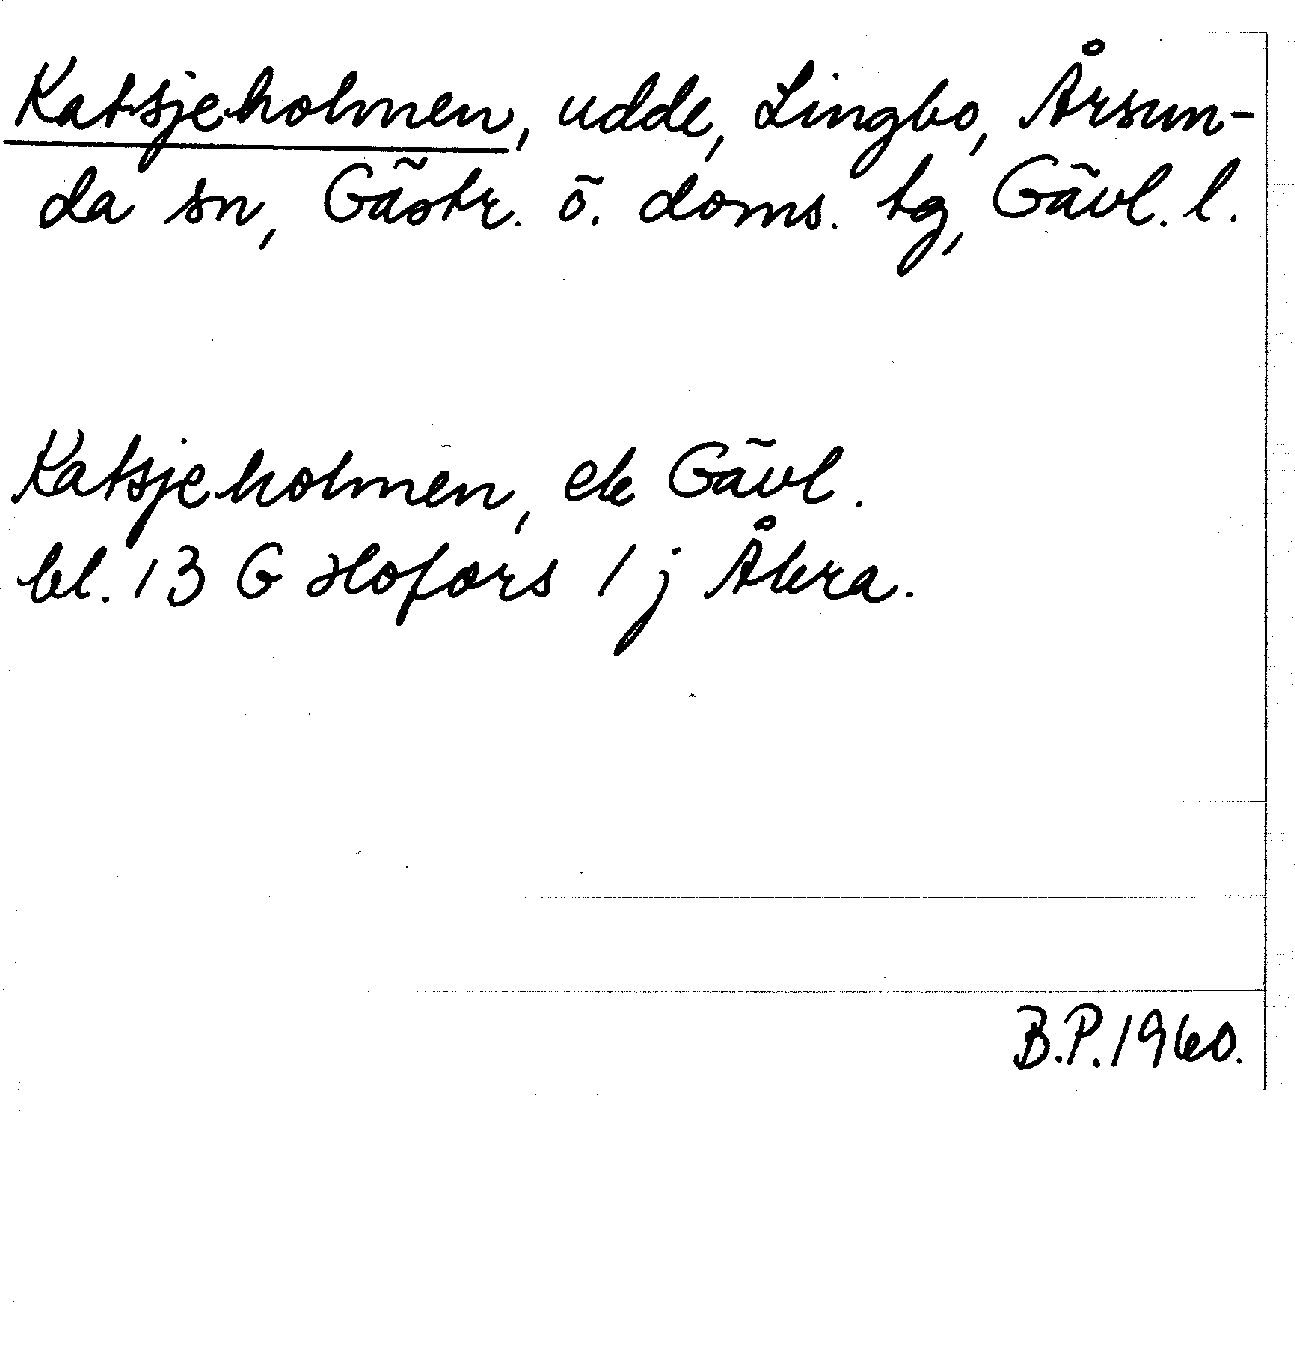 Katsjeholmen, udde, Lingbo, Årsun-
da sn, Gästr. ö. doms. tg, Gävl. l.
Katsjeholmen, ek Gävl.
bl. 13 G Hofors 1 j Åkra.
B.P. 1960.